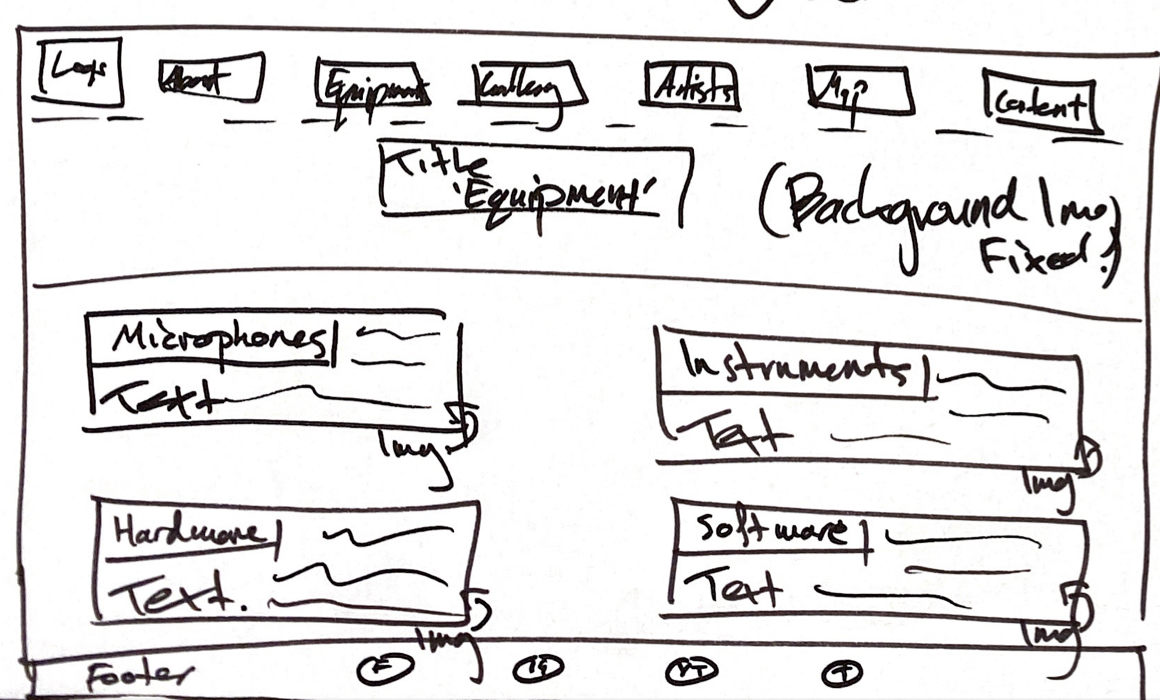 Logo About Equipment Gallery Artists Map Contact
Title
'Equipment'
(Background Img
Fixed.)
Microphones
Text
Img
Instruments
Text
Img
Hardware
Text.
Img
Software
Text
Img
Footer